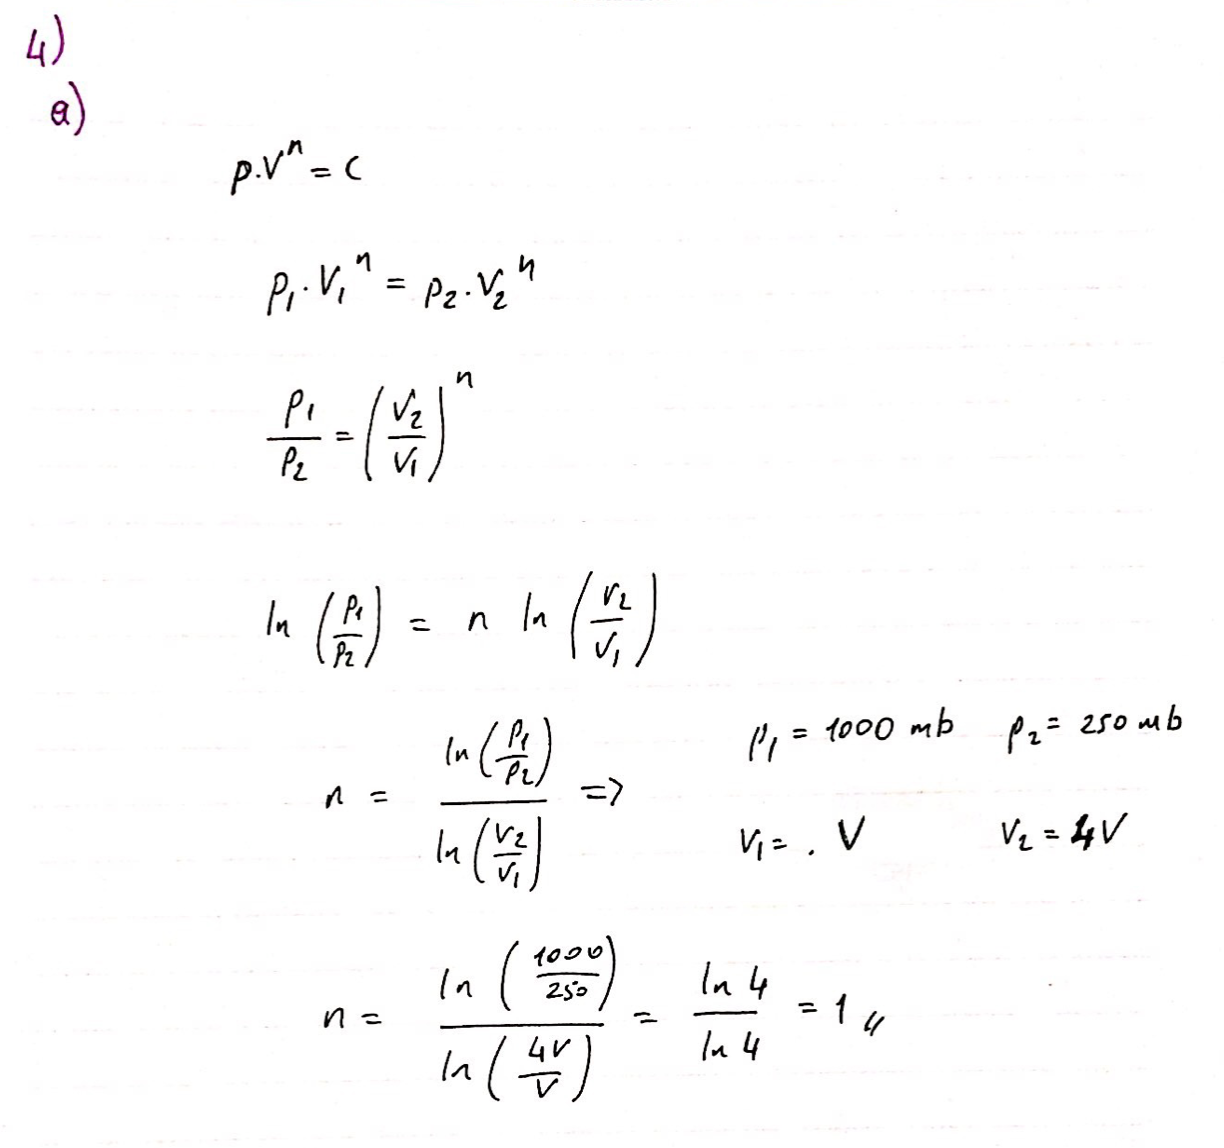 4)
a)
p.Vⁿ = C
p₁.V₁ⁿ = p₂.V₂ⁿ
p₁/p₂ = (V₂/V₁)ⁿ
ln (p₁/p₂) = n ln (V₂/V₁)
n = ln(p₁/p₂) / ln(V₂/V₁) => p₁ = 1000 mb p₂ = 250 mb
V₁ = . V V₂ = 4V
n = ln (1000/250) / ln (4V/V) = ln 4 / ln 4 = 1 //